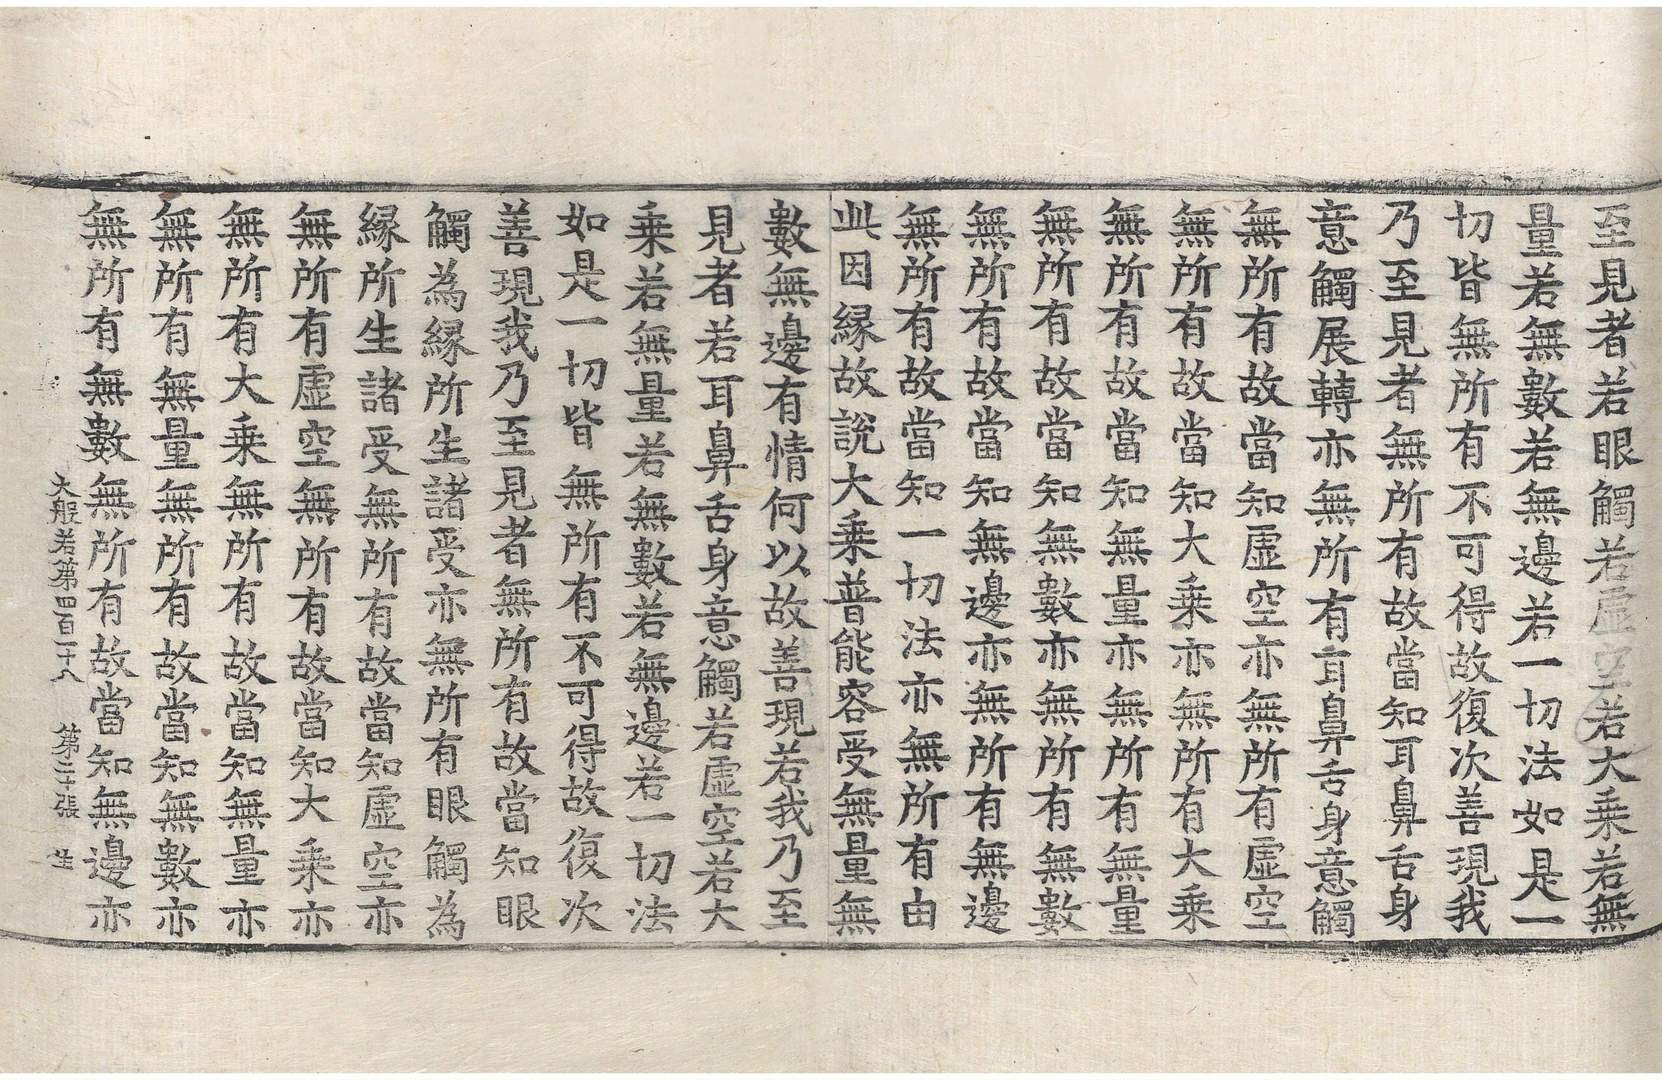 至見者若眼觸若虛空若大乗若無
量若無數若無邊若一切法如是一
切皆無所有不可得故復次善現我
乃至見者無所有故當知耳鼻舌身
意觸展轉亦無所有耳鼻舌身意觸
無所有故當知虛空亦無所有虛空
無所有故當知大乗亦無所有大乗
無所有故當知無量亦無所有無量
無所有故當知無數亦無所有無數
無所有故當知無邊亦無所有無邊
無所有故當知一切法亦無所有由
此因緣故說大乗普能容受無量無
數無邊有情何以故善現若我乃至
見者若耳鼻舌身意觸若虛空若大
乗若無量若無數若無邊若一切法
如是一切皆無所有不可得故復次
善現我乃至見者無所有故當知眼
觸為緣所生諸受亦無所有眼觸為
緣所生諸受無所有故當知虛空亦
無所有虛空無所有故當知大乗亦
無所有大乗無所有故當知無量亦
無所有無量無所有故當知無數亦
無所有無數無所有故當知無邊亦
大般若第四百一十八　第二十張　生